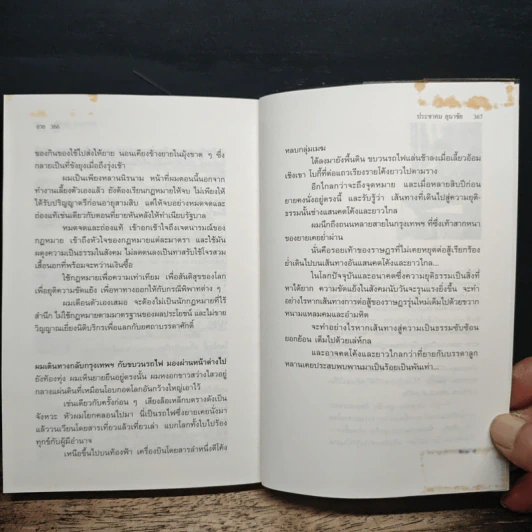 ยาย 366
ของกินของใช้ไปส่งให้ยาย นอนเคียงข้างยายในมุ้งขาด ๆ ซึ่ง
กลายเป็นที่ขังยุงเมื่อถึงรุ่งเช้า
ผมเป็นเพียงหลานนิรนาม หน้าที่ผมตอนนี้นอกจาก
ทำงานเลี้ยงตัวเองแล้ว ยังต้องเรียนกฎหมายให้จบ ไม่เพียงให้
ได้รับปริญญาตรีก่อนอายุสามสิบ แต่ให้จบอย่างหมดจดและ
ถ่องแท้เช่นเดียวกับตอนที่ยายหันหลังให้ทำเนียบรัฐบาล
หมดจดและถ่องแท้ เข้าอกเข้าใจถึงเจตนารมณ์ของ
กฎหมาย เข้าถึงหัวใจของกฎหมายแต่ละมาตรา และใช้มัน
ผดุงความเป็นธรรมในสังคม ไม่ลดตนลงเป็นทาสรับใช้โจรสวม
เสื้อนอกที่พร้อมจะคว่ำเงินซื้อ
ใช้กฎหมายเพื่อความเท่าเทียม เพื่อสันติสุขของโลก
เพื่อยุติความขัดแย้ง เพื่อหาทางออกให้กับกรณีพิพาทต่าง ๆ
ผมเตือนตัวเองเสมอ จะต้องไม่เป็นนักกฎหมายที่ไร้
สำนึก ไม่ใช้กฎหมายตามมาตรฐานของผลประโยชน์ และไม่ขาย
วิญญาณเยี่ยงนิติบริกรเพื่อแลกกับยศถาบรรดาศักดิ์
ผมเดินทางกลับกรุงเทพฯ กับขบวนรถไฟ มองผ่านหน้าต่างไป
ยังท้องทุ่ง ผมเห็นยายยืนอยู่ตรงนั้น ผมหงอกขาวสว่างไสวอยู่
กลางแผ่นดินที่เหมือนโอบกอดโลกอันกว้างใหญ่เอาไว้
เช่นเดียวกับครั้งก่อน ๆ เสียงล้อเหล็กบดรางดังเป็น
จังหวะ หัวผมโยกคลอนไปมา นี่เป็นรถไฟซึ่งยายเคยนั่งมา
แล้ววนเวียนโดยสารเที่ยวแล้วเที่ยวเล่า แบกโลกทั้งใบไปร้อง
ทุกข์กับผู้มีอำนาจ
เหนือขึ้นไปบนท้องฟ้า เครื่องบินโดยสารลำหนึ่งตีโค้ง
ประชาคม ลุนาชัย 367
หลบกลุ่มเมฆ
ใต้ลงมายังพื้นดิน ขบวนรถไฟแล่นช้าลงเมื่อเลี้ยวอ้อม
เชิงเขา โบกี้ที่ต่อแถวเรียงรายโค้งยาวไปตามราง
อีกไกลกว่าจะถึงจุดหมาย และเมื่อหลายสิบปีก่อน
ยายคงนั่งอยู่ตรงนี้ และรับรู้ว่า เส้นทางที่เดินไปสู่ความยุติ-
ธรรมนั้นช่างแสนคดโค้งและยาวไกล
ผมนึกถึงถนนหลายสายในกรุงเทพฯ ที่ซึ่งเท้าสากหนา
ของยายเคยย่ำผ่าน
นั่นคือรอยเท้าของราษฎรที่ไม่เคยหยุดต่อสู้เรียกร้อง
ย่ำเดินไปบนเส้นทางอันแสนคดโค้งและยาวไกล...
ในโลกปัจจุบันและอนาคตซึ่งความยุติธรรมเป็นสิ่งที่
หาได้ยาก ความขัดแย้งในสังคมนับวันจะรุนแรงยิ่งขึ้น จะทำ
อย่างไรหากเส้นทางการต่อสู้ของราษฎรรุ่นใหม่เต็มไปด้วยขวาก
หนามแหลมคมและอำมหิต
จะทำอย่างไรหากเส้นทางสู่ความเป็นธรรมซับซ้อน
ยอกย้อน เต็มไปด้วยเล่ห์กล
และอาจคดโค้งและยาวไกลกว่าที่ยายกับบรรดาลูก
หลานเคยประสบพบพานมาเป็นร้อยเป็นพันเท่า...